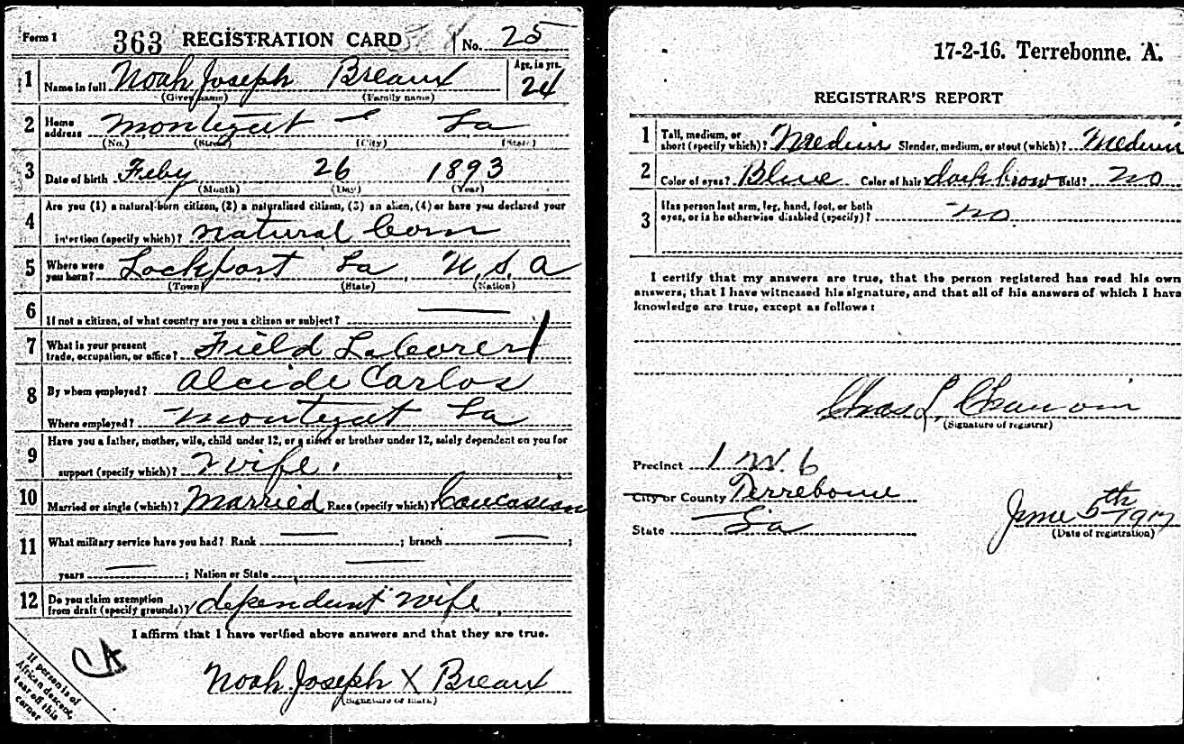 Form 1 363 REGISTRATION CARD No. 25
1 Name in full Noah Joseph Breaux Age, in yrs. 24
(Given name) (Family name)
2 Home address Montegut La
(No.) (Street) (City) (State)
3 Date of birth Feby 26 1893
(Month) (Day) (Year)
4 Are you (1) a natural-born citizen, (2) a naturalized citizen, (3) an alien, (4) or have you declared your
intention (specify which)? natural born
5 Where were you born? Lockport La U.S.A
(Town) (State) (Nation)
6 If not a citizen, of what country are you a citizen or subject?
7 What is your present trade, occupation, or office? Field Laborer
8 By whom employed? Alcide Carlos
Where employed? Montegut La
9 Have you a father, mother, wife, child under 12, or a sister or brother under 12, solely dependent on you for
support (specify which)? Wife.
10 Married or single (which)? Married Race (specify which)? Caucasian
11 What military service have you had? Rank ; branch ;
years ; Nation or State
12 Do you claim exemption from draft (specify grounds)? dependent wife
I affirm that I have verified above answers and that they are true.
CA
Noah Joseph X Breaux
(Signature or mark)
If person is of
African descent,
tear off this
corner
17-2-16. Terrebonne. A.
REGISTRAR'S REPORT
1 Tall, medium, or short (specify which)? Medium Slender, medium, or stout (which)? Medium
2 Color of eyes? Blue Color of hair dark brown Bald? No
3 Has person lost arm, leg, hand, foot, or both eyes, or is he otherwise disabled (specify)? no
I certify that my answers are true, that the person registered has read his own
answers, that I have witnessed his signature, and that all of his answers of which I have
knowledge are true, except as follows:
Chas L. Chauvin
(Signature of registrar)
Precinct 1 W. 6
City or County Terrebonne
State La
June 5th 1917
(Date of registration)